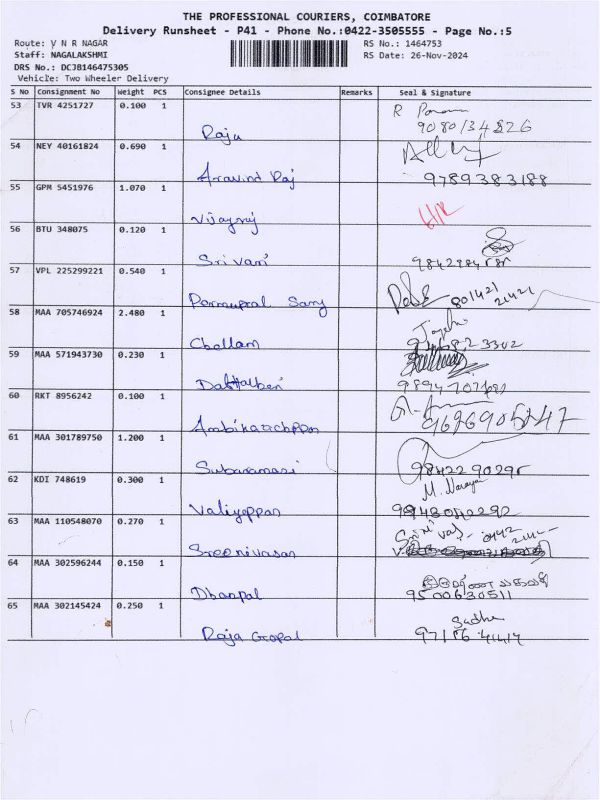 THE PROFESSIONAL COURIERS, COIMBATORE
Delivery Runsheet - P41 - Phone No.:0422-3505555 - Page No.:5
Route: V N R NAGAR RS No.: 1464753
Staff: NAGALAKSHMI RS Date: 26-Nov-2024
DRS No.: DCJB146475305
Vehicle: Two Wheeler Delivery
S No Consignment No Weight PCS Consignee Details Remarks Seal & Signature
53 TVR 4251727 0.100 1
Raju 9080134826
54 NEY 40161824 0.690 1
Aravind Raj 9789383188
55 GPM 5451976 1.070 1
Vijayraj
56 BTU 348075 0.120 1
Srivani
57 VPL 225299221 0.540 1
58 MAA 705746924 2.480 1
Chellam
59 MAA 571943730 0.230 1
60 RKT 8956242 0.100 1
9626905247
61 MAA 301789750 1.200 1
9842290295
62 KDI 748619 0.300 1
Valiyappan
63 MAA 110548070 0.270 1
Sreenivasan
64 MAA 302596244 0.150 1
Dhanpal 9500630511
65 MAA 302145424 0.250 1
Sadha
Raja Gopal